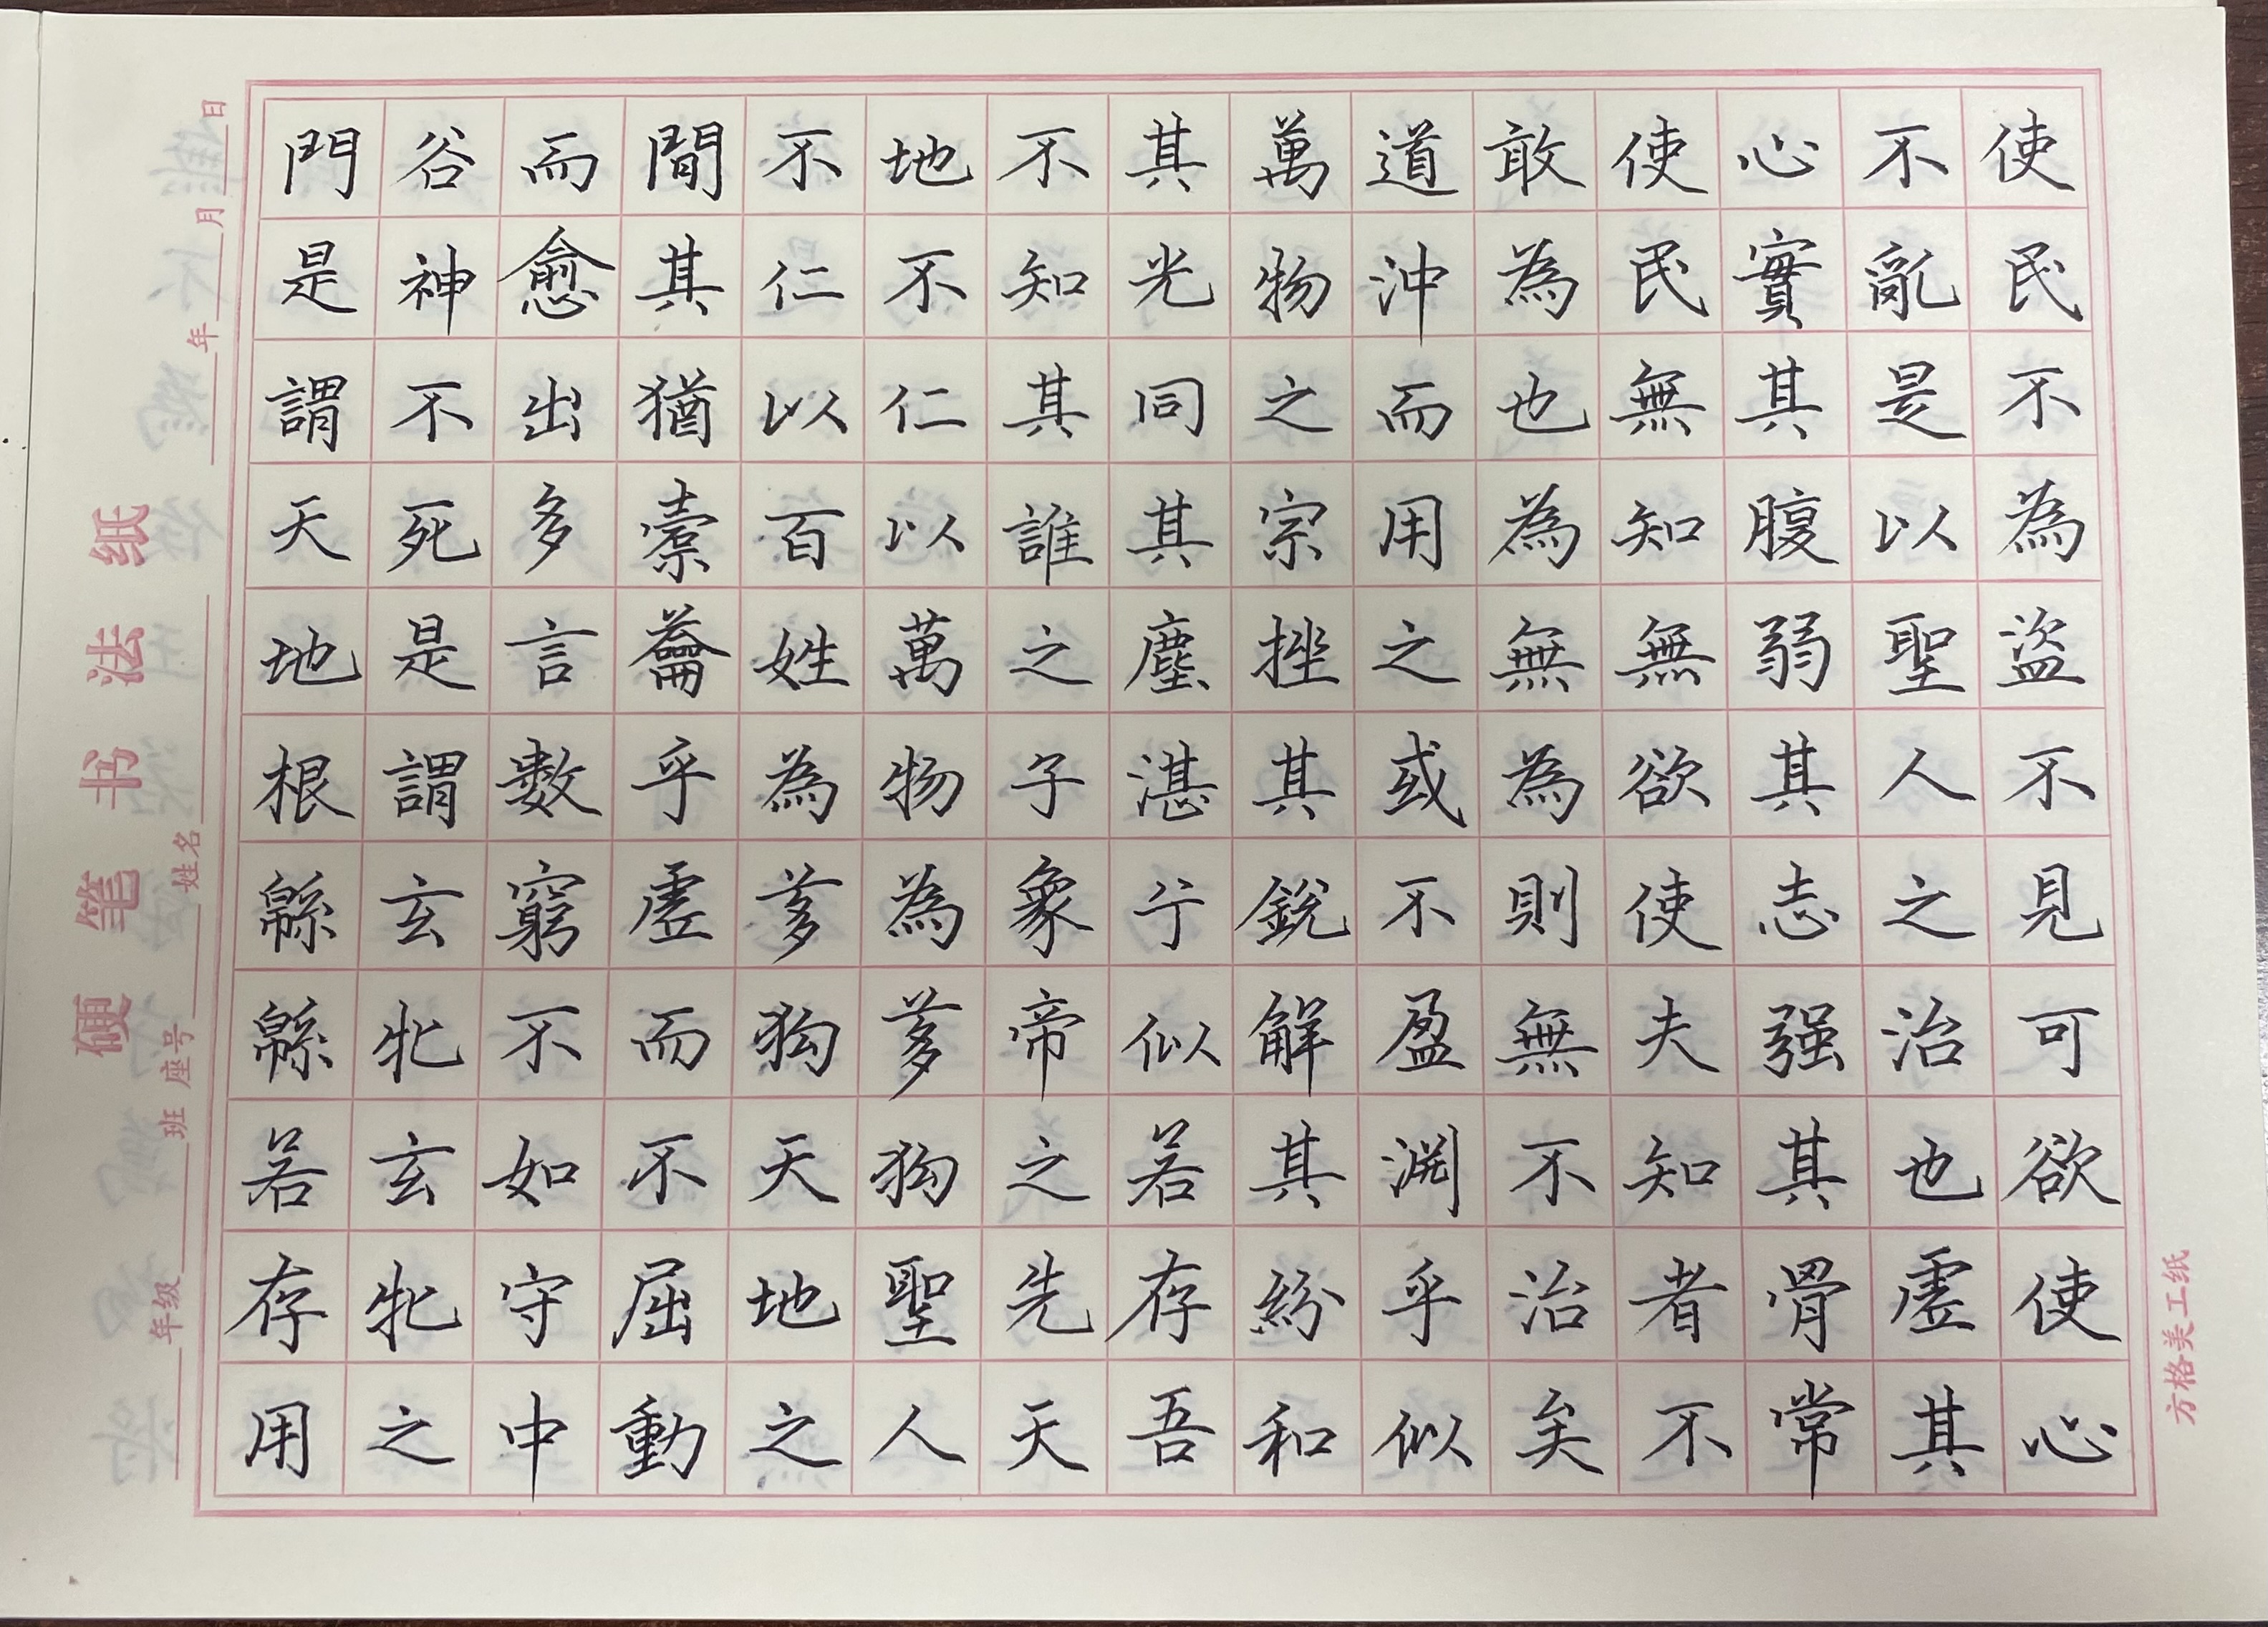 使民不為盜不見可欲使心
不亂是以聖人之治也虛其
心實其腹弱其志强其骨常
使民無知無欲使夫知者不
敢為也為無為則無不治矣
道沖而用之或不盈淵乎似
萬物之宗挫其銳解其紛和
其光同其塵湛兮似若存吾
不知其誰之子象帝之先天
地不仁以萬物為芻狗聖人
不仁以百姓為芻狗天地之
間其猶橐籥乎虛而不屈動
而愈出多言數窮不如守中
谷神不死是謂玄牝玄牝之
門是謂天地根緜緜若存用
硬笔书法纸
年级 班 座号 姓名 年 月 日
方格美工纸